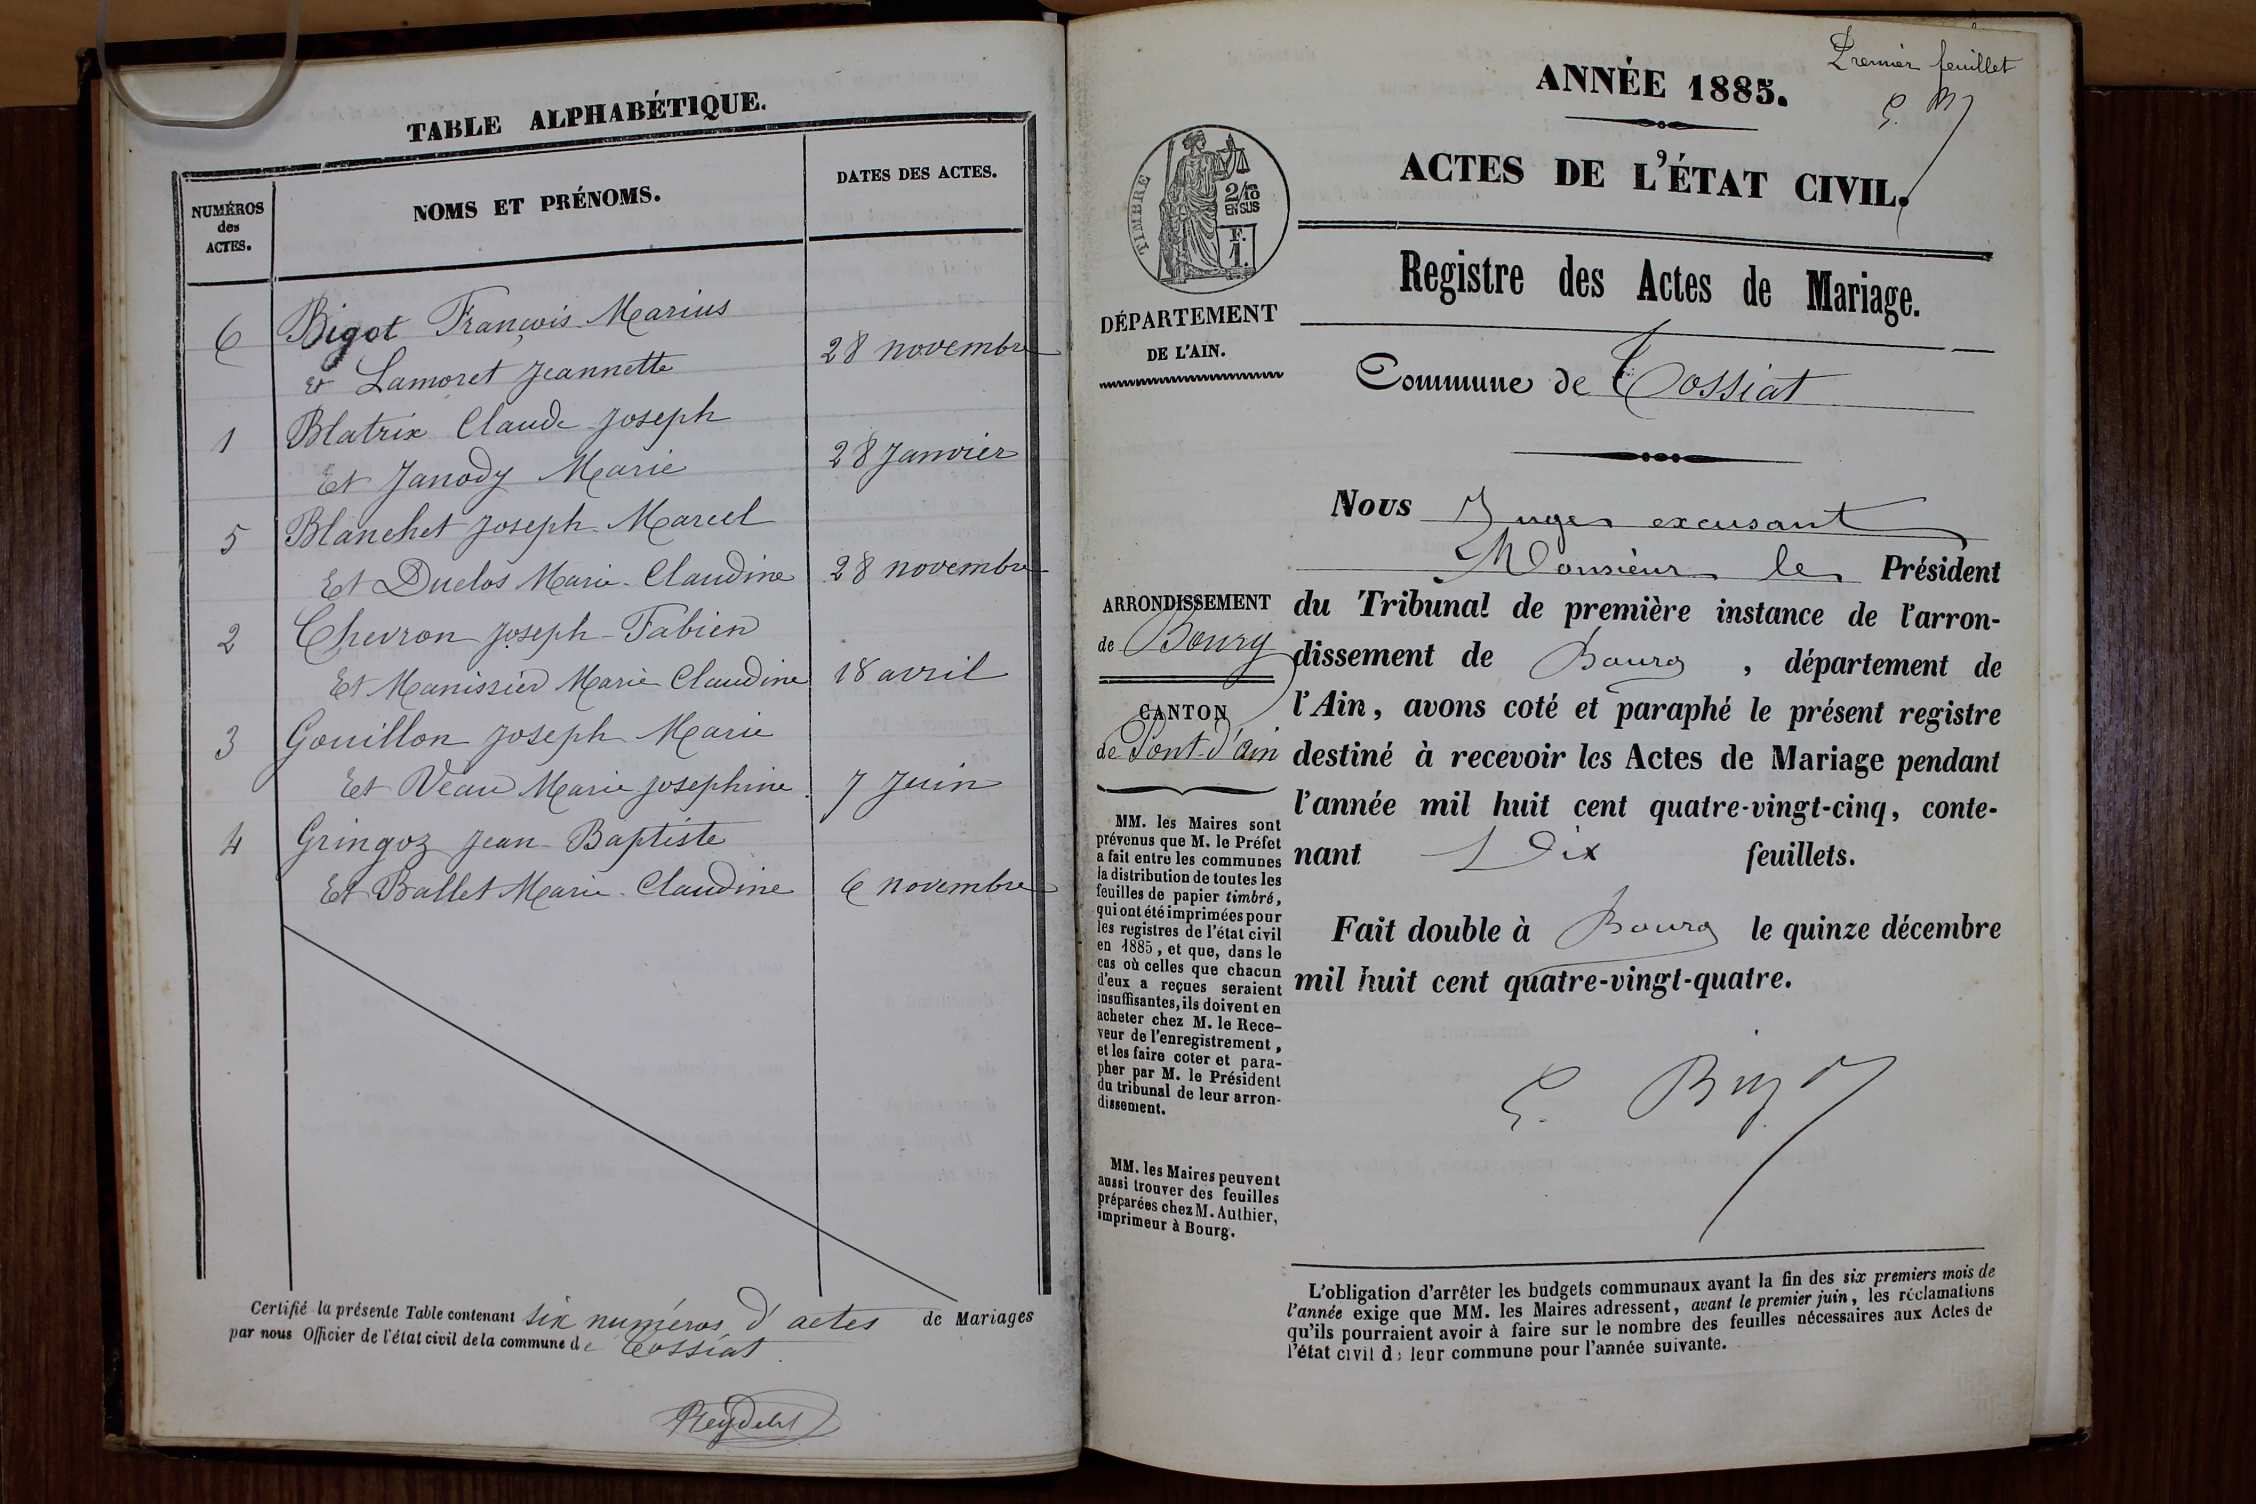 TABLE ALPHABÉTIQUE.
NUMÉROS
des
ACTES.
NOMS ET PRÉNOMS.
DATES DES ACTES.
6 Bigot François Marius
et Lamoret Jeannette 28 novembre
1 Blatrix Claude Joseph
Et Janody Marie 28 Janvier
5 Blanchet Joseph Marcel
Et Duclos Marie Claudine 28 novembre
2 Chevron Joseph Fabien
Et Manissier Marie Claudine 18 avril
3 Gouillon Joseph Marie
Et Veau Marie Josephine 7 Juin
4 Gringoz Jean Baptiste
Et Ballet Marie Claudine 6 novembre
Certifié la présente Table contenant six numéros d'actes de Mariages
par nous Officier de l'état civil de la commune de Tossiat
Reydelet
Premier feuillet
ANNÉE 1885.
ACTES DE L'ÉTAT CIVIL.
TIMBRE
2/10
EN SUS
F.
1.
Registre des Actes de Mariage.
DÉPARTEMENT
DE L'AIN.
Commune de Tossiat
Nous Juge excusant
Monsieur le Président
du Tribunal de première instance de l'arron-
dissement de Bourg, département de
l'Ain, avons coté et paraphé le présent registre
destiné à recevoir les Actes de Mariage pendant
l'année mil huit cent quatre-vingt-cinq, conte-
nant Dix feuillets.
Fait double à Bourg le quinze décembre
mil huit cent quatre-vingt-quatre.
ARRONDISSEMENT
de Bourg
CANTON
de Pont-d'Ain
MM. les Maires sont
prévenus que M. le Préfet
a fait entre les communes
la distribution de toutes les
feuilles de papier timbré,
qui ont été imprimées pour
les registres de l'état civil
en 1885, et que, dans le
cas où celles que chacun
d'eux a reçues seraient
insuffisantes, ils doivent en
acheter chez M. le Rece-
veur de l'enregistrement,
et les faire coter et para-
pher par M. le Président
du tribunal de leur arron-
dissement.
MM. les Maires peuvent
aussi trouver des feuilles
préparées chez M. Authier,
imprimeur à Bourg.
L'obligation d'arrêter les budgets communaux avant la fin des six premiers mois de
l'année exige que MM. les Maires adressent, avant le premier juin, les réclamations
qu'ils pourraient avoir à faire sur le nombre des feuilles nécessaires aux Actes de
l'état civil de leur commune pour l'année suivante.